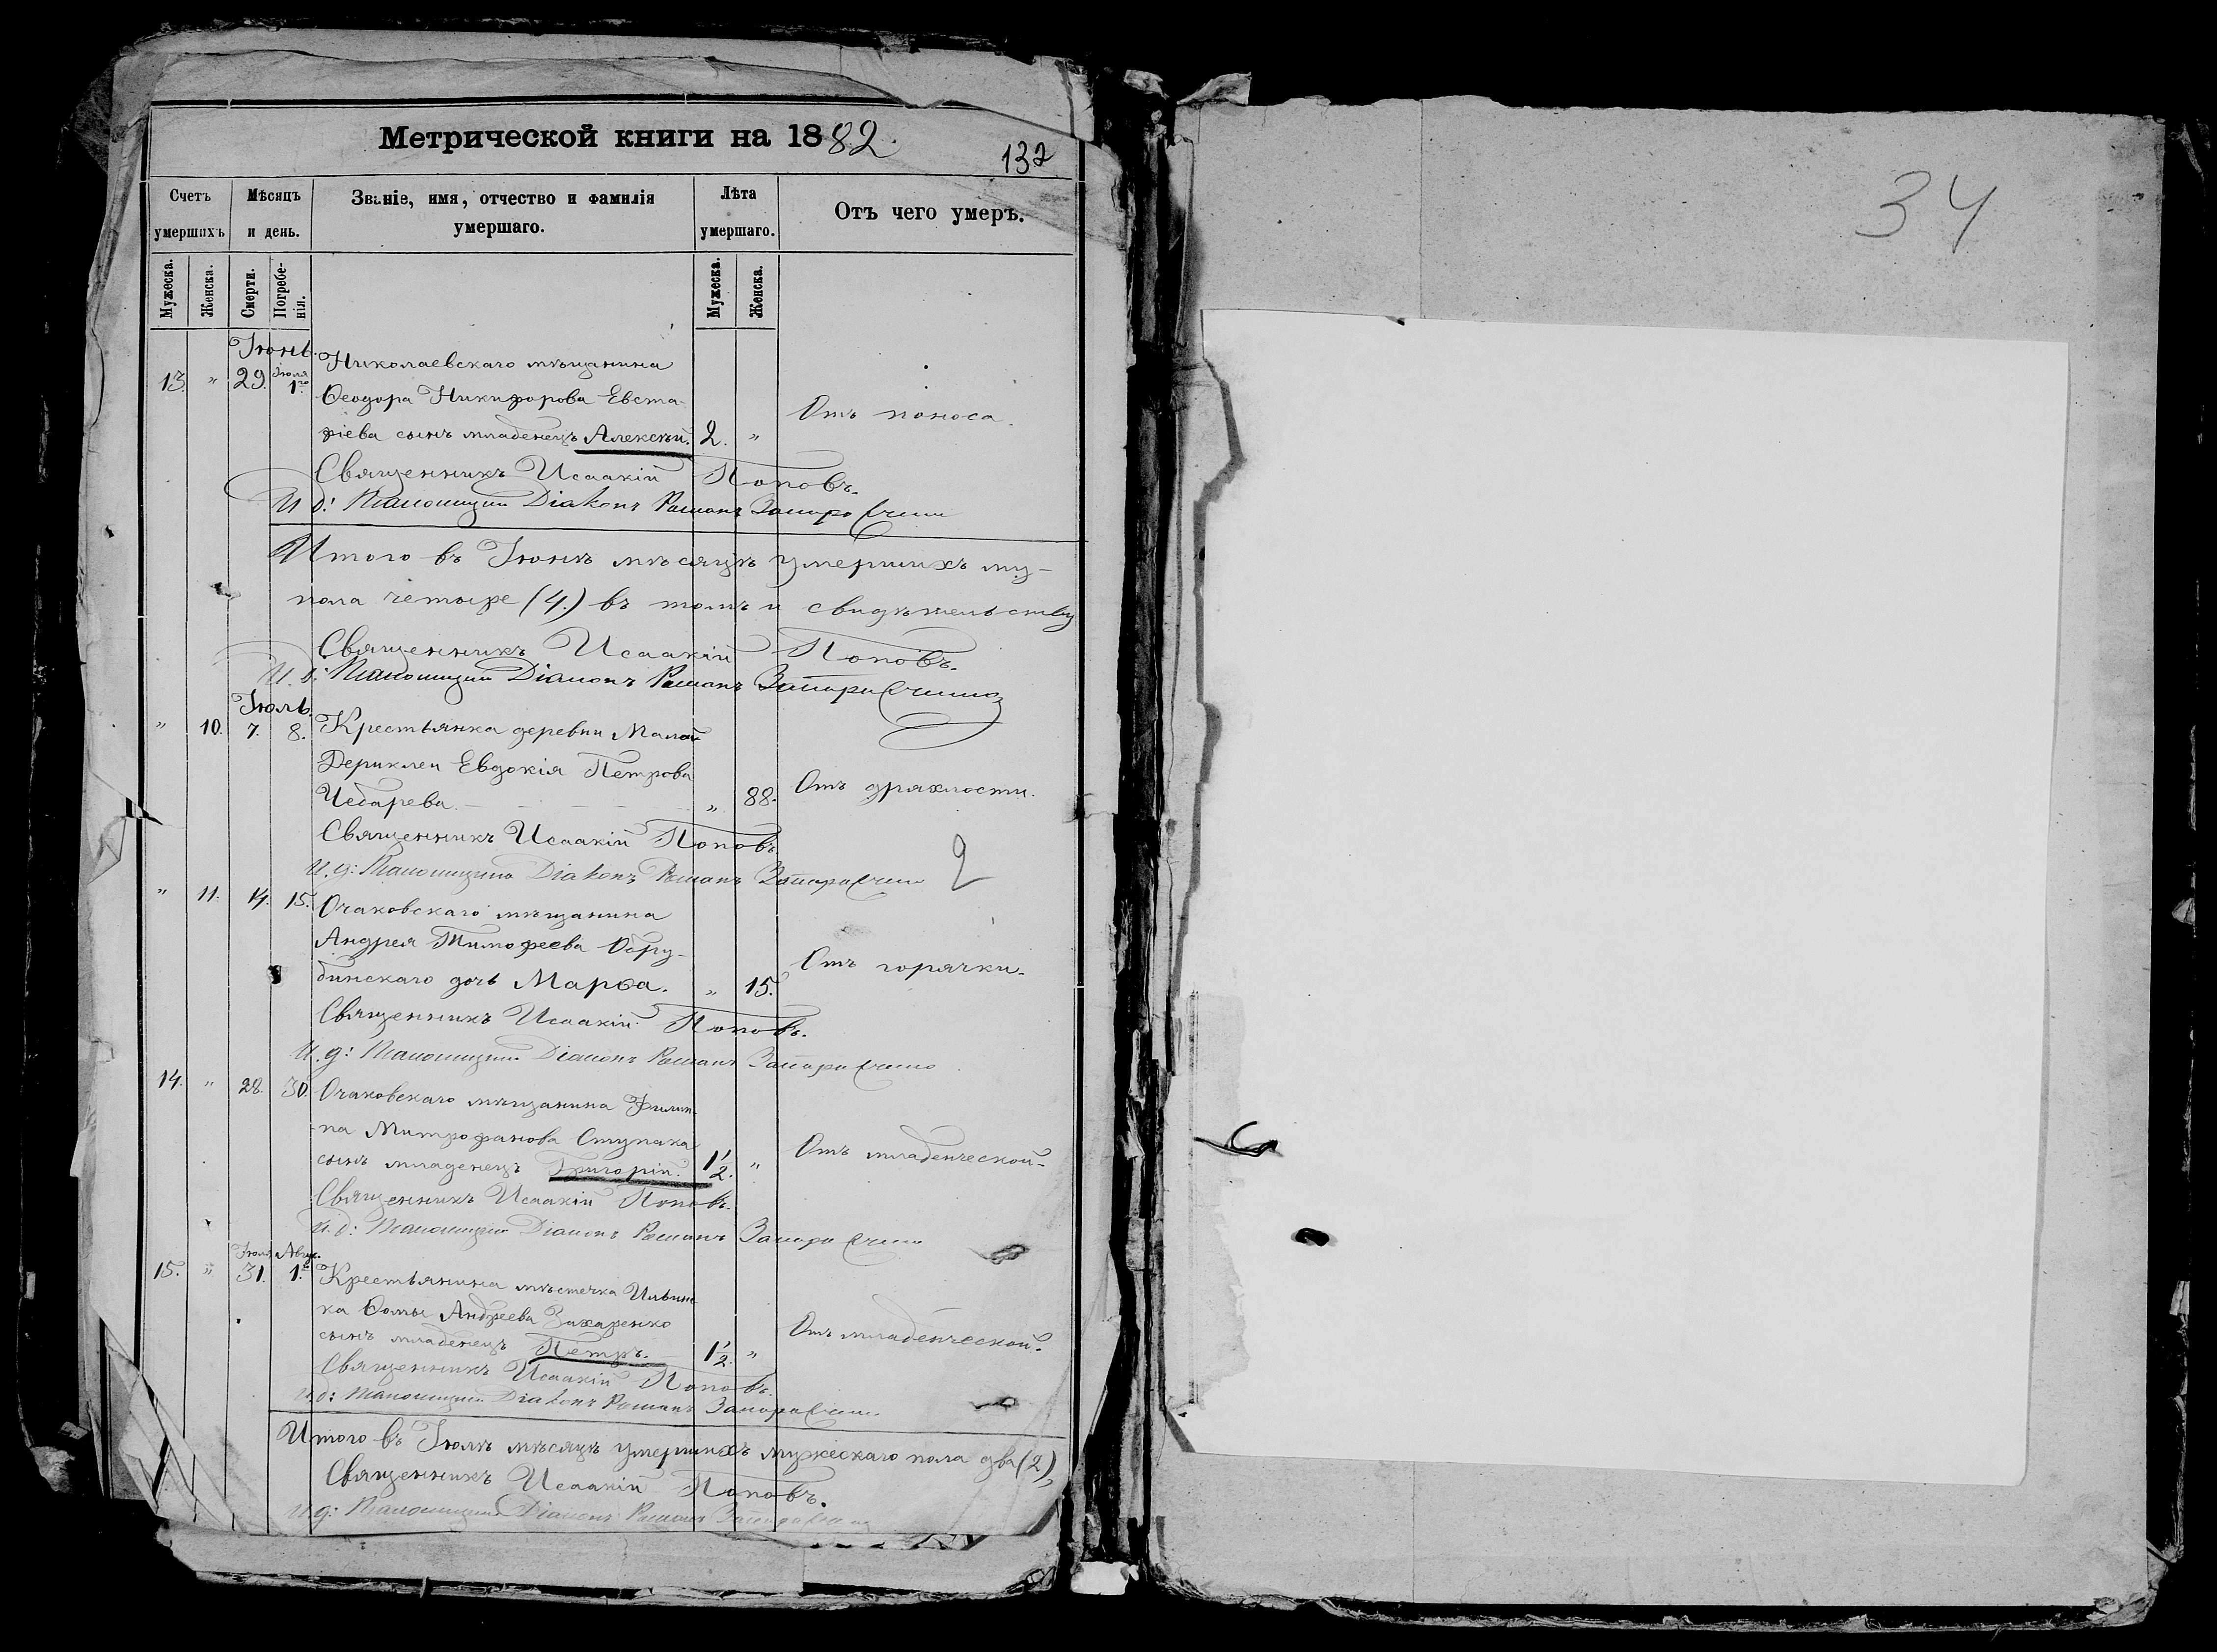 Метрической книги на 1882.
132
Счетъ умершихъ
Мѣсяцъ и день.
Званіе, имя, отчество и фамилія умершаго.
Лѣта умершаго.
Отъ чего умеръ.
Мужеска. Женска. Смерти. Погребенія. Мужеска. Женска.
Іюнь. Николаевскаго мѣщанина
13. " 29. Іюля 1го
Ѳеодора Никифорова Евста-
фіева сынъ младенецъ Алексѣй. 2. " Отъ поноса.
Священникъ Исаакій Поповъ.
И. д: Псаломщика Діаконъ Романъ
Итого въ Іюнѣ мѣсяцѣ умершихъ му-
пола четыре (4.) въ томъ и свидѣтельству
Священникъ Исаакій Поповъ.
И. д: Псаломщика Діаконъ Романъ
Іюль.
" 10. 7. 8. Крестьянка деревни Малой
Дериклеи Евдокія Петрова
Чебарева. " 88. Отъ дряхлости.
Священникъ Исаакій Поповъ.
И. д: Псаломщика Діаконъ Романъ
2
" 11. 14. 15. Очаковскаго мѣщанина
Андрея Тимофеева Обру-
бинскаго дочь Марѳа. " 15. Отъ горячки.
Священникъ Исаакій Поповъ.
И. д: Псаломщика Діаконъ Романъ
14. " 28. 30. Очаковскаго мѣщанина Филип-
па Митрофанова Ступака
сынъ младенецъ Григорій. 1 1/2. " Отъ младенческой.
Священникъ Исаакій Поповъ.
И. д: Псаломщика Діаконъ Романъ
Іюля Авгус.
15. " 31. 1. Крестьянина мѣстечка Ильин-
ка Ѳомы Андреева Захаренко
сынъ младенецъ Петръ. 1 1/2. " Отъ младенческой.
Священникъ Исаакій Поповъ.
И. д: Псаломщика Діаконъ Романъ
Итого въ Іюлѣ мѣсяцѣ умершихъ мужескаго пола два (2),
Священникъ Исаакій Поповъ.
И. д: Псаломщика Діаконъ Романъ
34